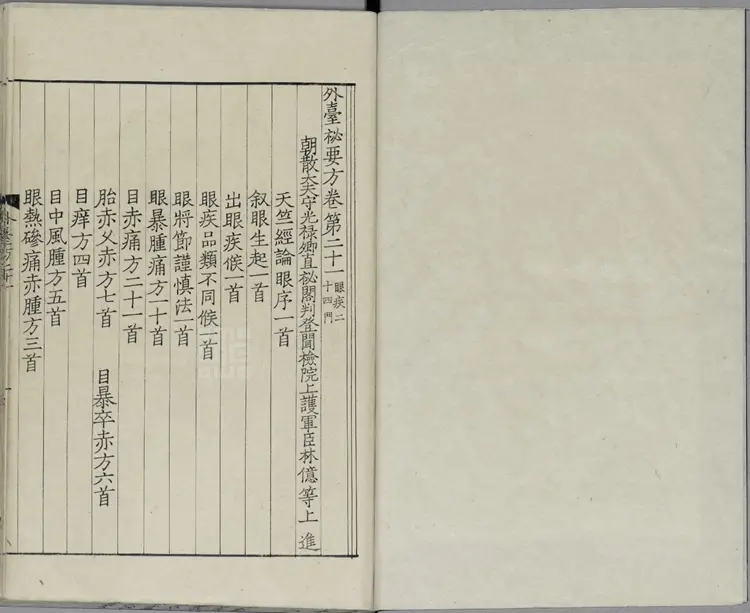 外臺祕要方卷第二十一 眼疾二十四門
朝散大夫守光祿卿直祕閣判登聞檢院上護軍臣林億等上進
天竺經論眼序一首
叙眼生起一首
出眼疾候一首
眼疾品類不同候一首
眼將節謹慎法一首
眼暴腫痛方一十首
目赤痛方二十一首
胎赤久赤方七首 目暴卒赤方六首
目痒方四首
目中風腫方五首
眼熱磣痛赤腫方三首